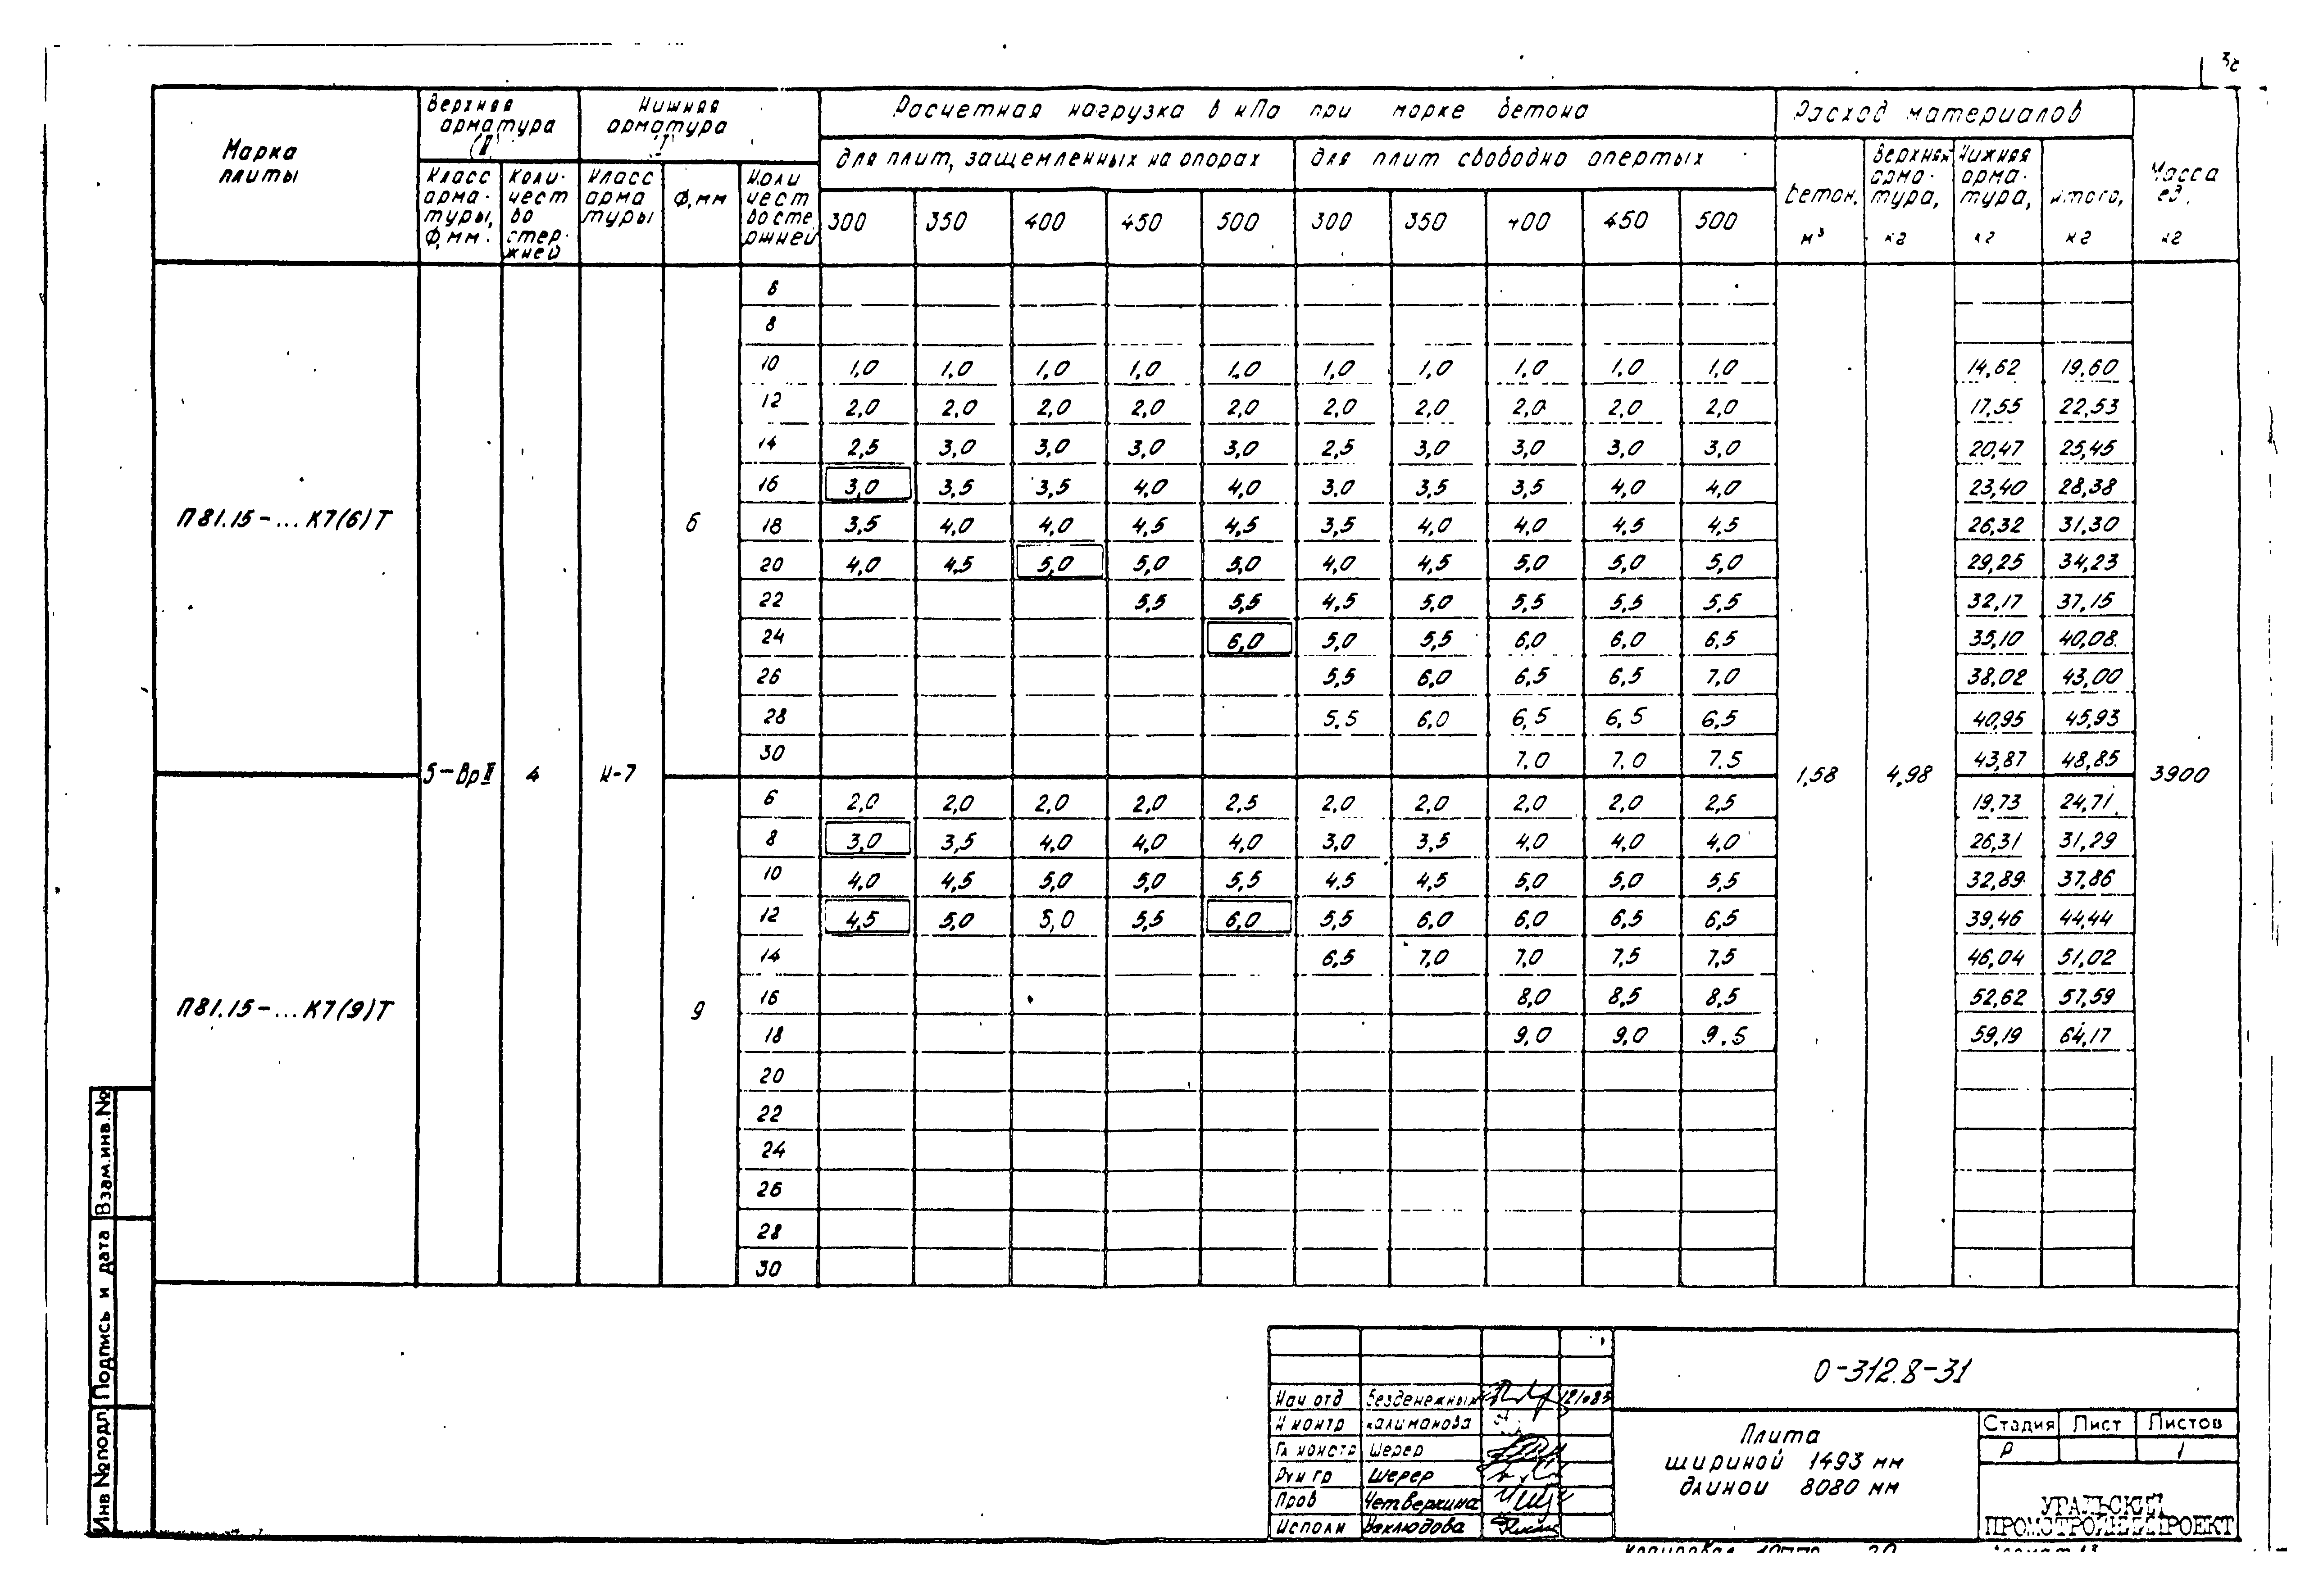 Марка плиты
Верхняя арматура (II)
Нижняя арматура (I)
Расчетная нагрузка в кПа при марке бетона
Расход материалов
Масса ед. кг
для плит, защемленных на опорах
для плит свободно опертых
Класс арма-туры, Ф,мм.
Коли-чест во стер-жней
Класс арма туры
Ф,мм
Коли чест во сте ржней
300 350 400 450 500 300 350 400 450 500
Бетон, м³
Верхняя арма-тура, кг
Нижняя арма-тура, кг
Итого, кг
П81.15-...К7(6)Т
5-ВрII 4 К-7 6
6
8
10 1,0 1,0 1,0 1,0 1,0 1,0 1,0 1,0 1,0 1,0 14,62 19,60
12 2,0 2,0 2,0 2,0 2,0 2,0 2,0 2,0 2,0 2,0 17,55 22,53
14 2,5 3,0 3,0 3,0 3,0 2,5 3,0 3,0 3,0 3,0 20,47 25,45
16 3,0 3,5 3,5 4,0 4,0 3,0 3,5 3,5 4,0 4,0 23,40 28,38
18 3,5 4,0 4,0 4,5 4,5 3,5 4,0 4,0 4,5 4,5 26,32 31,30
20 4,0 4,5 5,0 5,0 5,0 4,0 4,5 5,0 5,0 5,0 29,25 34,23
22 5,5 5,5 4,5 5,0 5,5 5,5 5,5 32,17 37,15
24 6,0 5,0 5,5 6,0 6,0 6,5 35,10 40,08
26 5,5 6,0 6,5 6,5 7,0 38,02 43,00
28 5.5 6,0 6,5 6,5 6,5 40,95 45,93
30 7,0 7,0 7.5 43,87 48,85
1,58 4,98 3900
П81.15-...К7(9)Т
9
6 2,0 2,0 2,0 2,0 2,5 2,0 2,0 2,0 2,0 2,5 19,73 24,71
8 3,0 3,5 4,0 4,0 4,0 3,0 3,5 4,0 4,0 4,0 26,31 31,29
10 4,0 4,5 5,0 5,0 5,5 4,5 4,5 5,0 5,0 5,5 32,89 37,86
12 4,5 5,0 5,0 5,5 6,0 5,5 6,0 6,0 6,5 6,5 39,46 44,44
14 6,5 7,0 7,0 7,5 7,5 46,04 51,02
16 8,0 8,5 8,5 52,62 57,59
18 9,0 9,0 9.5 59,19 64,17
20
22
24
26
28
30
Взам.инв.№
Подпись и дата
Инв №подл.
Нач отд Безденежных
Н контр Калиманова
Гл констр Шерер
Рук гр Шерер
Пров Четверкина
Исполн Неклюдова
0-312.8-31
Плита
шириной 1493 мм
длиной 8080 мм
Стадия Лист Листов
Р 1
УРАЛЬСКИЙ
ПРОМСТРОЙНИИПРОЕКТ